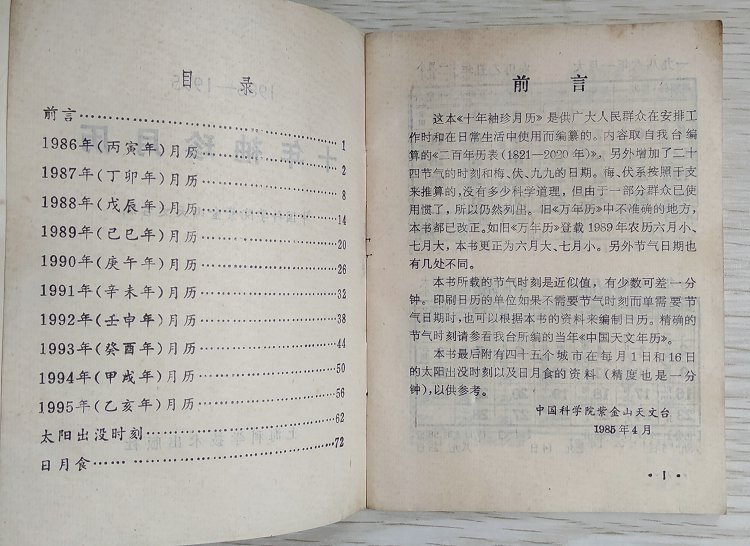 目录
前言 1
1986年(丙寅年)月历 2
1987年(丁卯年)月历 8
1988年(戊辰年)月历 14
1989年(己巳年)月历 20
1990年(庚午年)月历 26
1991年(辛未年)月历 32
1992年(壬申年)月历 38
1993年(癸酉年)月历 44
1994年(甲戌年)月历 50
1995年(乙亥年)月历 56
太阳出没时刻 62
日月食 72
前言
这本《十年袖珍月历》是供广大人民群众在安排工
作时和在日常生活中使用而编纂的。内容取自我台编
算的《二百年历表(1821—2020年)》,另外增加了二十
四节气的时刻和梅、伏、九九的日期。梅、伏系按照干支
来推算的,没有多少科学道理,但由于一部分群众已使
用惯了,所以仍然列出。旧《万年历》中不准确的地方,
本书都已改正。如旧《万年历》登载1989年农历六月小、
七月大,本书更正为六月大、七月小。另外节气日期也
有几处不同。
本书所载的节气时刻是近似值,有少数可差一分
钟。印刷日历的单位如果不需要节气时刻而单需要节
气日期时,也可以根据本书的资料来编制日历。精确的
节气时刻请参看我台所编的当年《中国天文年历》。
本书最后附有四十五个城市在每月1日和16日
的太阳出没时刻以及日月食的资料(精度也是一分
钟),以供参考。
中国科学院紫金山天文台
1985年4月
·1·